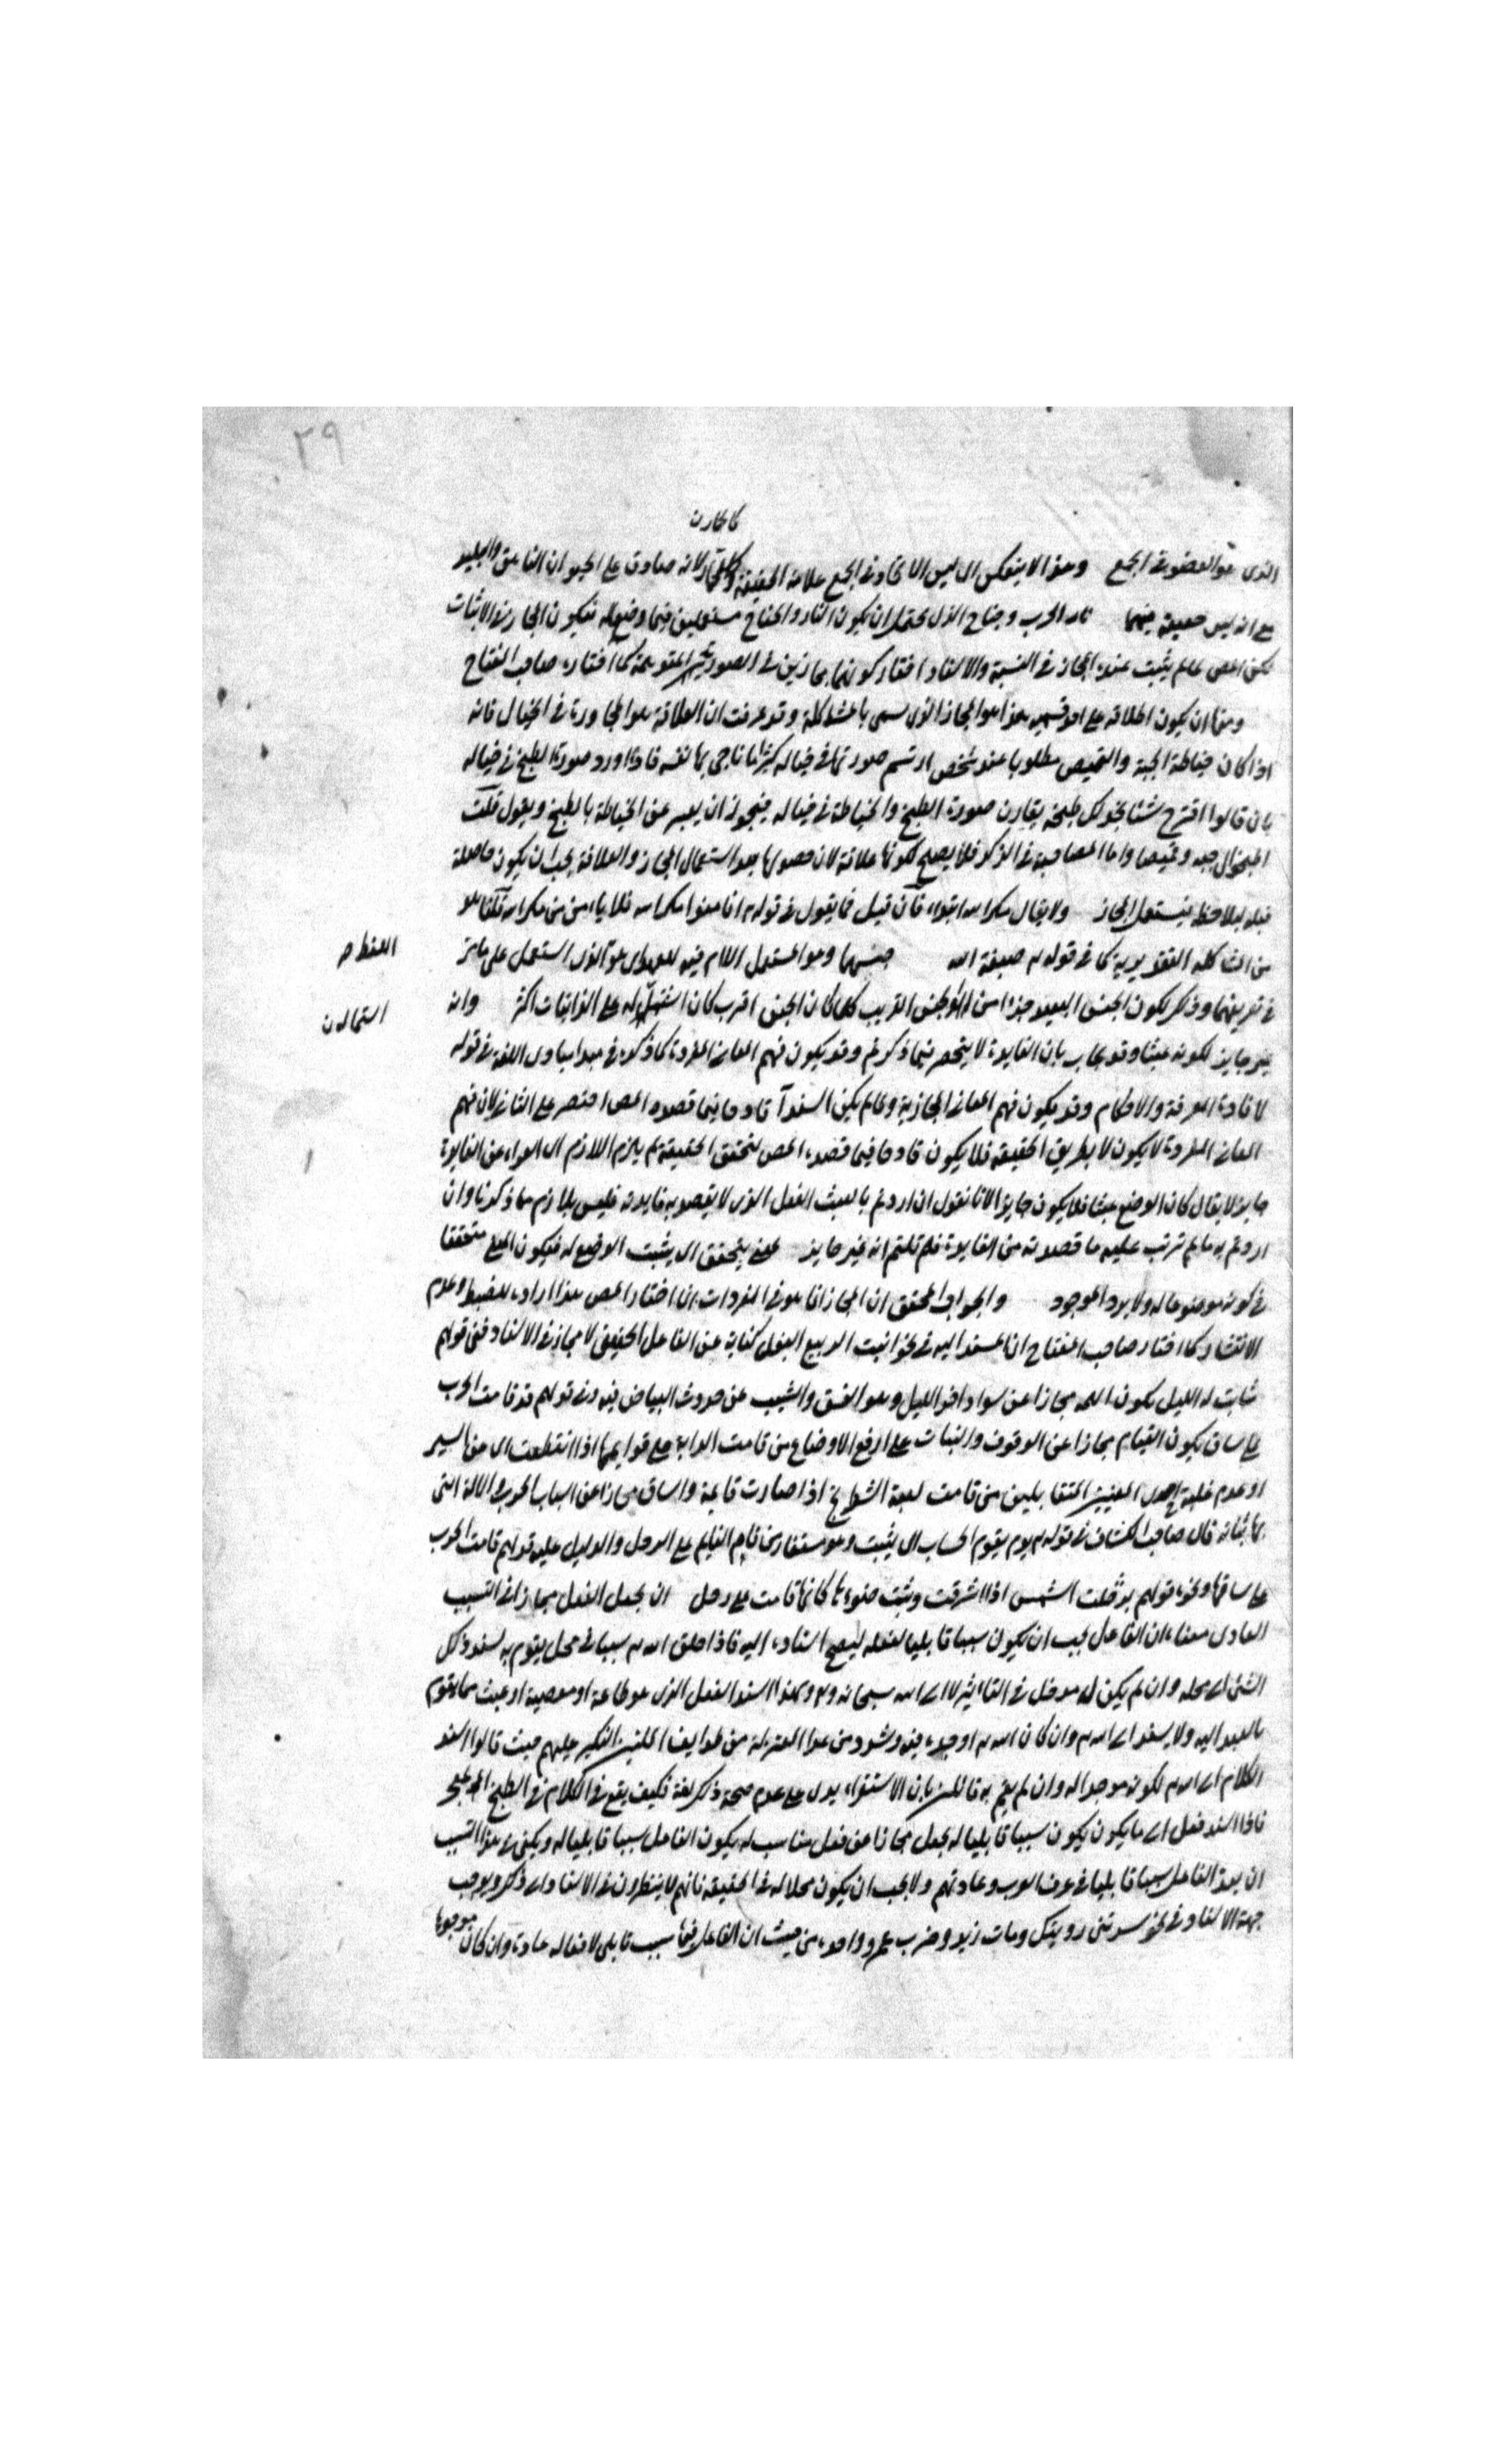 ٢٩
كالحارن
الذي هو العضو في الجمع وهذا لا ينعكس اي ليس الاتحاد في الجمع علامة الحقيقة لانه صادق على الحيوان الناهق والبليد
على انه ليس حقيقة فيهما نار الحرب وجناح الذل يحتمل ان يكون النار والجناح مستعملين فيما وضع له فيكون المجاز في الاثبات
لكن المص لما لم يثبت عنده المجاز في النسبة والاسناد اختار كونهما مجازين في الصورة المتوهمة كما اختاره صاحب المفتاح
ومنها ان يكون اطلاقه على احد قسميه هذا هو المجاز الذي سمى بالمشاكلة وقد عرفت ان العلاقة هو المجاورة في الخيال فانه
اذا كان خياطة الجبة والقميص مطلوبا عند شخص ارتسم صورتها في خياله كثيرا ما ناجى بها نفسه فاذا اورد صورة الطبخ في خياله
بان قالوا اقترح شئا نجد لك طبخه يقارن صورة الطبخ والخياطة في خياله فيجوز ان يعبر عن الخياطة بالطبخ ويقول قلت
اطبخوا لي جبة وقميصا واما المصاحبة في الذكر فلا يصلح لكونها علاقة لان حصولها بعد استعمال المجاز والعلاقة يجب ان يكون حاصلة
قبله ليلاحظ فيستعمل المجاز ولا يقال مكر الله ابتداء فان قيل فما يقول في قوله تع افأمنوا مكر الله فلا يأمن من مكر الله قلنا هو
من المشاكلة التقديرية كما في قوله تع صبغة الله جنسهما وهو المستعمل اللام فيه للعهد اي هو الذي استعمل على ما مر
اللفظ صح
في تعريفهما وذكر لكون الجنس البعيد جزءا من الجنس القريب كلما كان الجنس اقرب كان اشتماله على الذاتيات اكثر وانه
استمالدن
غير جايز لكونه عبثا وقد يجاب بان الفايدة لا ينحصر فيما ذكرتم وقد يكون فهم المعاني المفردة كما ذكره في مبدا مبادى اللغة في قوله
لافادة المعرفة والاحكام وقد يكون فهم المعاني المجازية ولما لم يكن السند قادحا فيما قصده المص اختصر على الثاني لان فهم
المعاني المفردة لا يكون لا بطريق الحقيقة فلا يكون قادحا فيما قصده المص لتحقق الحقيقة ثم يلزم اللازم اي العراء عن الفايدة
جايز لا يقال كان الوضع عبثا فلا يكون جايزا لانا نقول ان اردتم بالعبث الفعل الذي لا يقصد به فايدة فليس بلازم مما ذكرنا وان
اردتم به ما لم ترتب عليه ما قصد منه من الفايدة فلم قلتم انه غير جايز يتحقق اي يثبت الوضع له فيكون متحققا
في كونه موضوعا له ولا يراد الموجود والجواب المحقق ان المجاز انما هو في المفردات انما اختار المص هذا ارادة للضبط وعدم
الانتشار كما اختار صاحب المفتاح ان المسند اليه في نحو انبت الربيع البقل كناية عن الفاعل الحقيقي لا مجاز في الاسناد ففي قولهم
شابت لمة الليل يكون اللمة مجازا عن سواد اخر الليل وهو الغسق والشيب عن حدوث البياض فيه وفي قولهم قد قامت الحرب
على ساق يكون القيام مجازا عن الوقوف والثبات على ارفع الاوضاع من قامت الدابة على قوايمها اذا انقطعت اي عن السير
او عدم غلبة المتقابلين من قامت لعبة الشطرنج اذا صارت قايمة والساق مجازا عن اسباب الحرب والالة التي
بها ثباته قال صاحب الكشاف في قوله تع يوم يقوم الحساب اي يثبت وهو مستعار من قيام القايم على الرجل والدليل عليه قولهم قامت الحرب
على ساقها ونحوه قولهم ترجلت الشمس اذا اشرقت وثبت ضوءها كانها قامت على رجل ان يجعل الفعل مجازا في التسبب
العادى معناه ان الفاعل يجب ان يكون سببا قابليا لفعله ليصح اسناده اليه فاذا خلق الله تع سببا في محل يقوم به يسند ذلك
الشئ الى محله وان لم يكن له مدخل في التاثير لا الى الله سبحانه وتع ولهذا اسند الفعل الذي هو طاعة او معصية او عبث مما يقوم
بالعبد اليه ولا يسند الى الله تع وان كان الله تع اوجده فيه وشدد من عدا المعتزلة من طوايف النكير عليهم حيث قالوا اسند
الكلام الى الله تع لكونه موجدا له وان لم يقم به قائلين بان الاستقراء يدل على عدم صحة ذلك لغة فكيف يقع في الكلام
فاذا اسند فعل الى ما يكون سببا قابليا له يجعل مجازا عن فعل مناسب له يكون الفاعل سببا قابليا له ويكفى في هذا التسبب
ان يعد الفاعل سببا قابليا في عرف العرب وعادتهم ولا يجب ان يكون محلا له في الحقيقة فانهم لا ينظرون في الاسناد الى ذلك
جهة الاسناد في نحو سرتني رويتك ومات زيد وضرب عمرو واحدة من حيث ان الفاعل فيها سبب قابلي لافعاله عادة وان كان موجودها